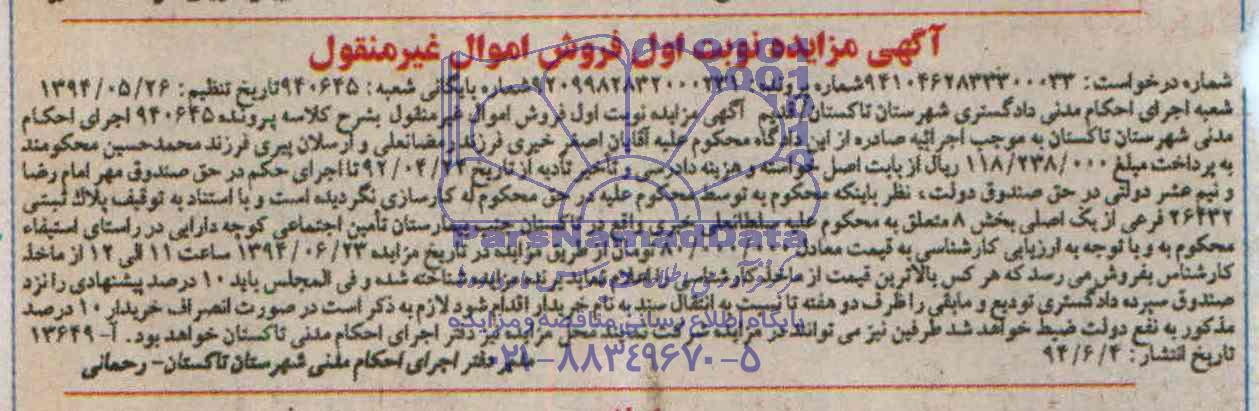 آگهی مزایده نوبت اول فروش اموال غیرمنقول
شماره درخواست: ۹۴۱۰۴۶۲۸۳۳۳۰۰۰۳۳ شماره پرونده: ۹۲۰۹۹۸۲۸۳۲۰۰۰۲۲۹ شماره بایگانی شعبه: ۹۴۰۶۴۵ تاریخ تنظیم: ۱۳۹۴/۰۵/۲۶
شعبه اجرای احکام مدنی دادگستری شهرستان تاکستان آگهی مزایده نوبت اول فروش اموال غیرمنقول بشرح کلاسه پرونده ۹۴۰۶۴۵ اجرای احکام
مدنی شهرستان تاکستان به موجب اجرائیه صادره از این دادگاه محکوم علیه آقایان اصغر خیری فرزند رمضانعلی و ارسلان پیری فرزند محمدحسین محکومند
به پرداخت مبلغ ۱۱۸/۲۳۸/۰۰۰ ریال از بابت اصل خواسته و هزینه دادرسی و تأخیر تأدیه از تاریخ ۹۲/۰۴/۲۴ تا اجرای حکم در حق صندوق مهر امام رضا
و نیم عشر دولتی در حق صندوق دولت، نظر باینکه محکوم به توسط محکوم علیه در حق محکوم له کارسازی نگردیده است و با استناد به توقیف پلاک ثبتی
۲۶۴۳۲ فرعی از یک اصلی بخش ۸ متعلق به محکوم علیه خیری واقع در تاکستان جنب بیمارستان تأمین اجتماعی کوچه دارایی در راستای استیفاء
محکوم به و با توجه به ارزیابی کارشناسی به قیمت معادل تومان از طریق مزایده در تاریخ مزایده ۱۳۹۴/۰۶/۲۳ ساعت ۱۱ الی ۱۲ از ماخذ
کارشناس بفروش می رسد که هر کس بالاترین قیمت از ماخذ کارشناسی را اعلام نماید برنده مزایده شناخته شده و فی المجلس باید ۱۰ درصد پیشنهادی را نزد
صندوق سپرده دادگستری تودیع و مابقی را ظرف دو هفته تا نسبت به انتقال سند به نام خریدار اقدام شود لازم به ذکر است در صورت انصراف خریدار ۱۰ درصد
مذکور به نفع دولت ضبط خواهد شد طرفین نیز می توانند در مزایده شرکت نمایند محل مزایده نیز دفتر اجرای احکام مدنی تاکستان خواهد بود. آ- ۱۳۶۴۹
تاریخ انتشار: ۹۴/۶/۴
مدیر دفتر اجرای احکام مدنی شهرستان تاکستان- رحمانی
ParsNamadData
پایگاه اطلاع رسانی مناقصه و مزایده
۰۲۱-۸۸۳۴۹۶۷۰-۵